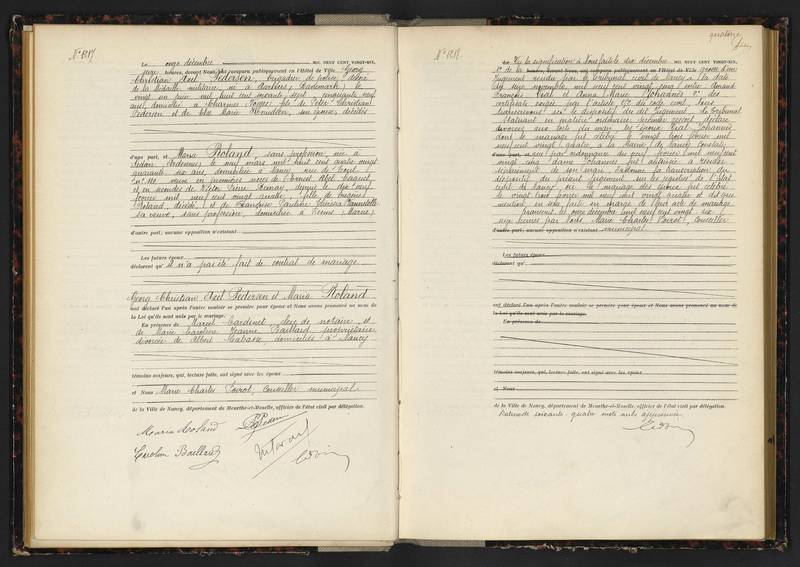 N° 1217
Le onze décembre MIL NEUF CENT VINGT-SIX,
seize heures, devant Nous ont comparu publiquement en l'Hôtel de Ville, Georg
Christian Axel Pedersen, brigadier de police, décoré
de la Médaille militaire, né à Aarhus (Danemark) le
vingt un juin mil huit cent soixante sept, cinquante neuf
ans, domicilié à Charmes Vosges, fils de Peter Christian
Pedersen et de Else Marie Knudsen, son épouse, décédés
d'une part, et Maria Roland, sans profession, née à
Sedan, Ardennes, le neuf mars mil huit cent quatre vingt
ans, domiciliée à Nancy, rue
veuve en premières noces de Ernest
et en secondes de Victor Pierre
février mil neuf cent vingt quatre, fille de Eugène
Roland, décédé, et de Françoise Pauline
sa veuve, sans profession, domiciliée à Reims (Marne)
d'autre part; aucune opposition n'existant.
Les futurs époux
déclarent qu'il n'a pas été fait de contrat de mariage.
Georg Christian Axel Pedersen et Maria Roland
ont déclaré l'un après l'autre vouloir se prendre pour époux et Nous avons prononcé au nom de
la Loi qu'ils sont unis par le mariage.
En présence de Marcel Cardinet, clerc de notaire, et
de Marie Caroline Jeanne Baillard, propriétaire,
divorcée de Albert domiciliés à Nancy
témoins majeurs, qui, lecture faite, ont signé avec les époux
et Nous Marie Charles Poirot, Conseiller municipal
de la Ville de Nancy, département de Meurthe-et-Moselle, officier de l'état civil par délégation.
Maria Roland Pedersen
Caroline Baillard
N° 1218
quatorze
Vu la signification à Nous faite le dix décembre MIL NEUF CENT VINGT-SIX,
heures, devant Nous ont comparu publiquement en l'Hôtel de Ville grosse d'un
jugement rendu par le tribunal civil de Nancy à la date
du seize novembre mil neuf cent vingt cinq entre Armand
François Vial et Anna Marie Johannès
certificats exigés par l'article 252 du code civil, Nous
transcrivons ici le dispositif du dit jugement. Le tribunal
Statuant en matière ordinaire premier ressort, déclare
divorcés aux torts du mari les époux Vial Johannès
dont le mariage fut célébré le vingt trois février mil
neuf cent vingt quatre, à la Mairie de Nancy, Constate
d'une part, et que par ordonnance du neuf février mil neuf cent
vingt cinq, dame Johannès fut autorisée à résider
séparément de son mari, Ordonne la transcription du
dispositif du présent jugement sur les registres de l'état
civil de Nancy où le mariage des époux fut célébré
le vingt trois février mil neuf cent vingt quatre et dit que
mention en sera faite en marge de leur acte de mariage.
Transcrit le onze décembre mil neuf cent vingt six,
seize heures par Nous Marie Charles Poirot, Conseiller
d'autre part; aucune opposition n'existant municipal
Les futurs époux
déclarent qu'
ont déclaré l'un après l'autre vouloir se prendre pour époux et Nous avons prononcé au nom de
la Loi qu'ils sont unis par le mariage.
En présence de
témoins majeurs, qui, lecture faite, ont signé avec les époux
et Nous
de la Ville de Nancy, département de Meurthe-et-Moselle, officier de l'état civil par délégation.
Rature de soixante quatre mots nuls approuvée